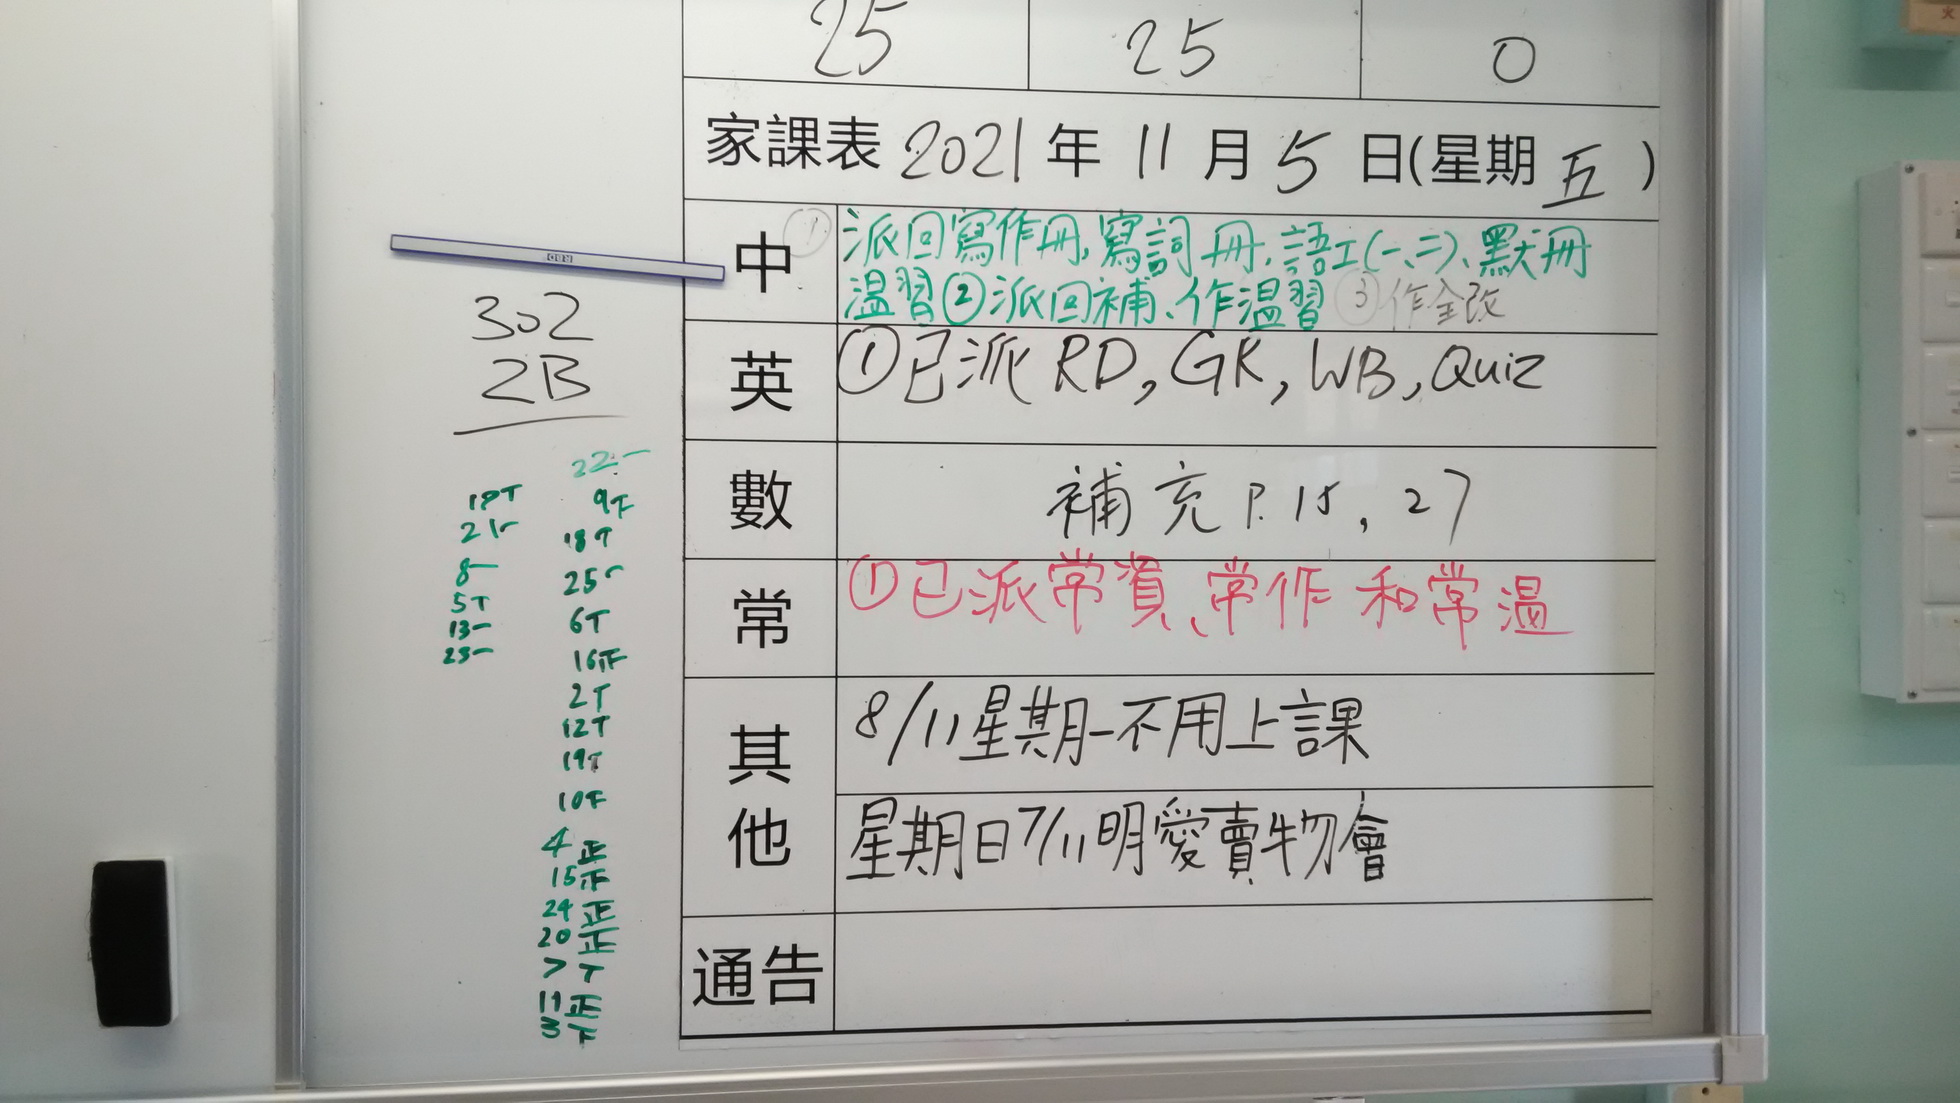 25 25 0
家課表 2021 年 11 月 5 日(星期 五 )
中 ① 派回寫作冊, 寫詞冊, 語工(一、二)、默冊
溫習②派回補、作溫習 ③作全改
英 ①已派 RD, GK, WB, Quiz
數 補充 P. 15, 27
常 ①已派常資、常作 和常溫
其他 8/11星期一不用上課
星期日7/11明愛賣物會
通告
302
2B
22一
18T 9下
21一 18T
8一 25一
5T 6T
13一 16正
23一 2T
12T
19T
10下
4正
15正
24正
20正
7T
11正
3下